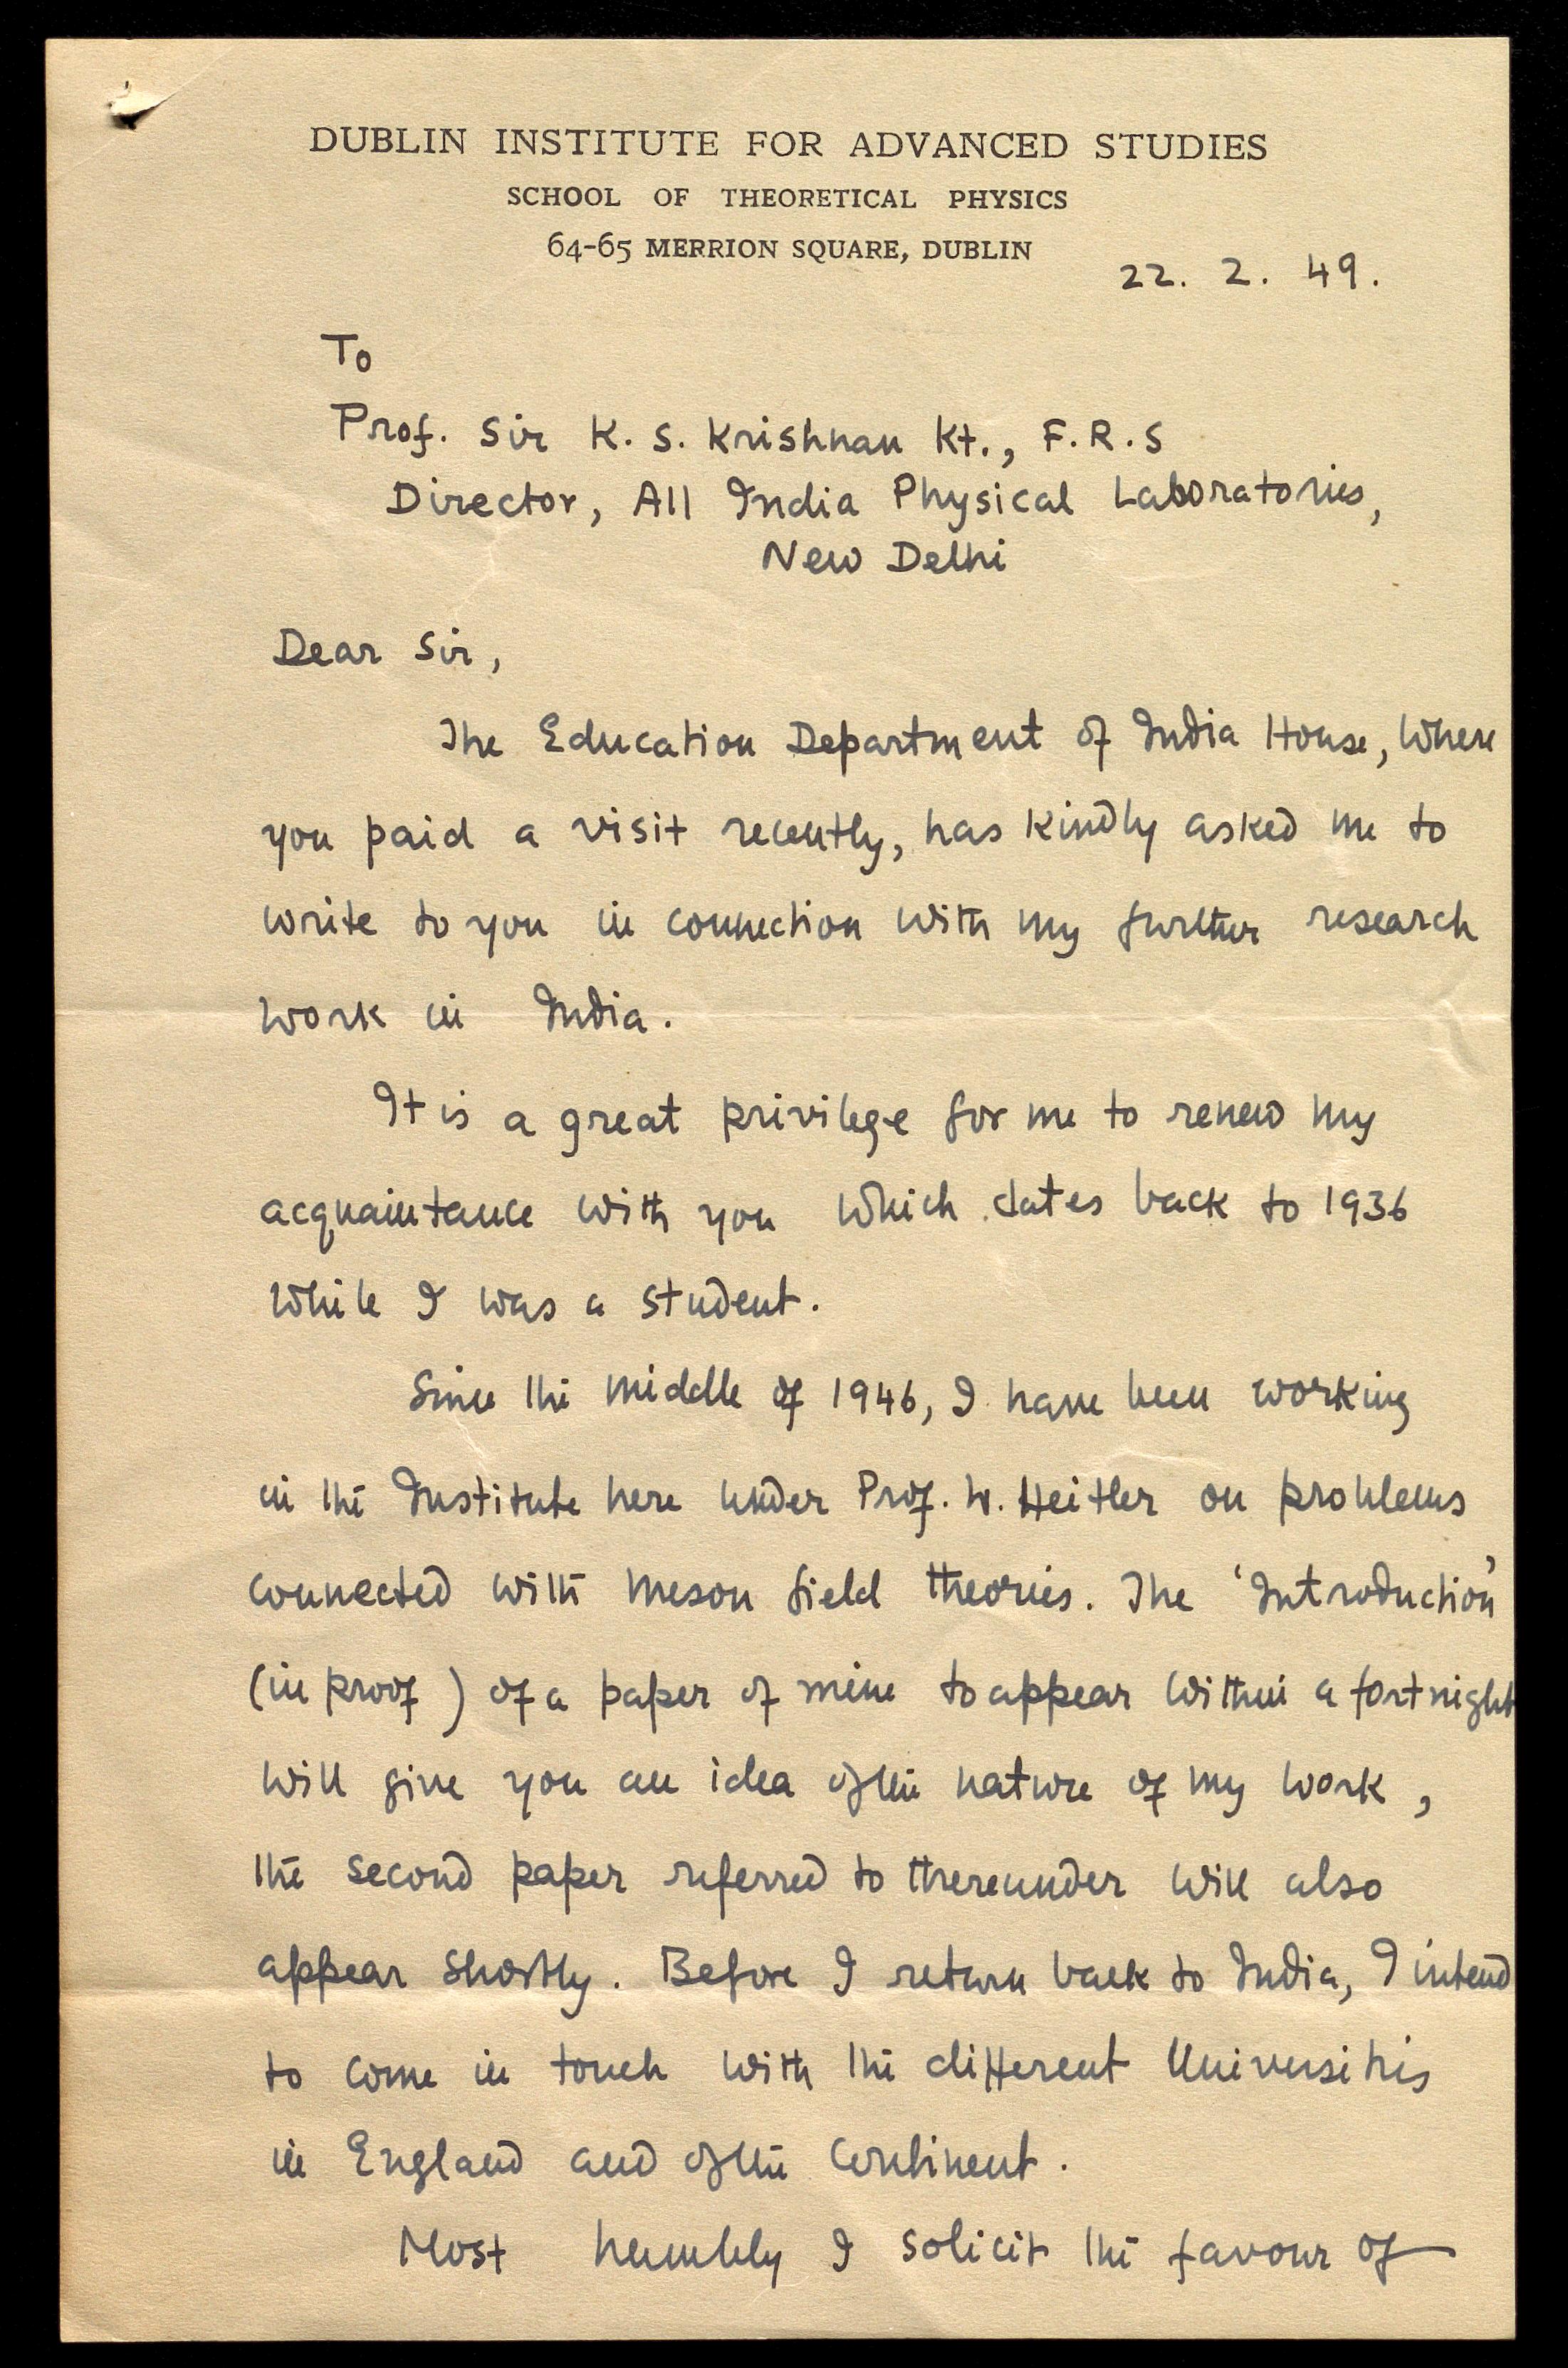 DUBLIN INSTITUTE FOR ADVANCED STUDIES
SCHOOL OF THEORETICAL PHYSICS
64-65 MERRION SQUARE, DUBLIN
22. 2. 49.
To
Prof. Sir K. S. Krishnan Kt., F.R.S
Director, All India Physical Laboratories,
New Delhi
Dear Sir,
The Education Department of India House, where
you paid a visit recently, has kindly asked me to
write to you in connection with my further research
work in India.
It is a great privilege for me to renew my
acquaintance with you which dates back to 1936
while I was a student.
Since the middle of 1946, I have been working
in the Institute here under Prof. W. Heitler on problems
connected with meson field theories. The 'Introduction'
(in proof) of a paper of mine to appear within a fortnight
will give you an idea of the nature of my work,
the second paper referred to thereunder will also
appear shortly. Before I return back to India, I intend
to come in touch with the different Universities
in England and of the Continent.
Most humbly I solicit the favour of